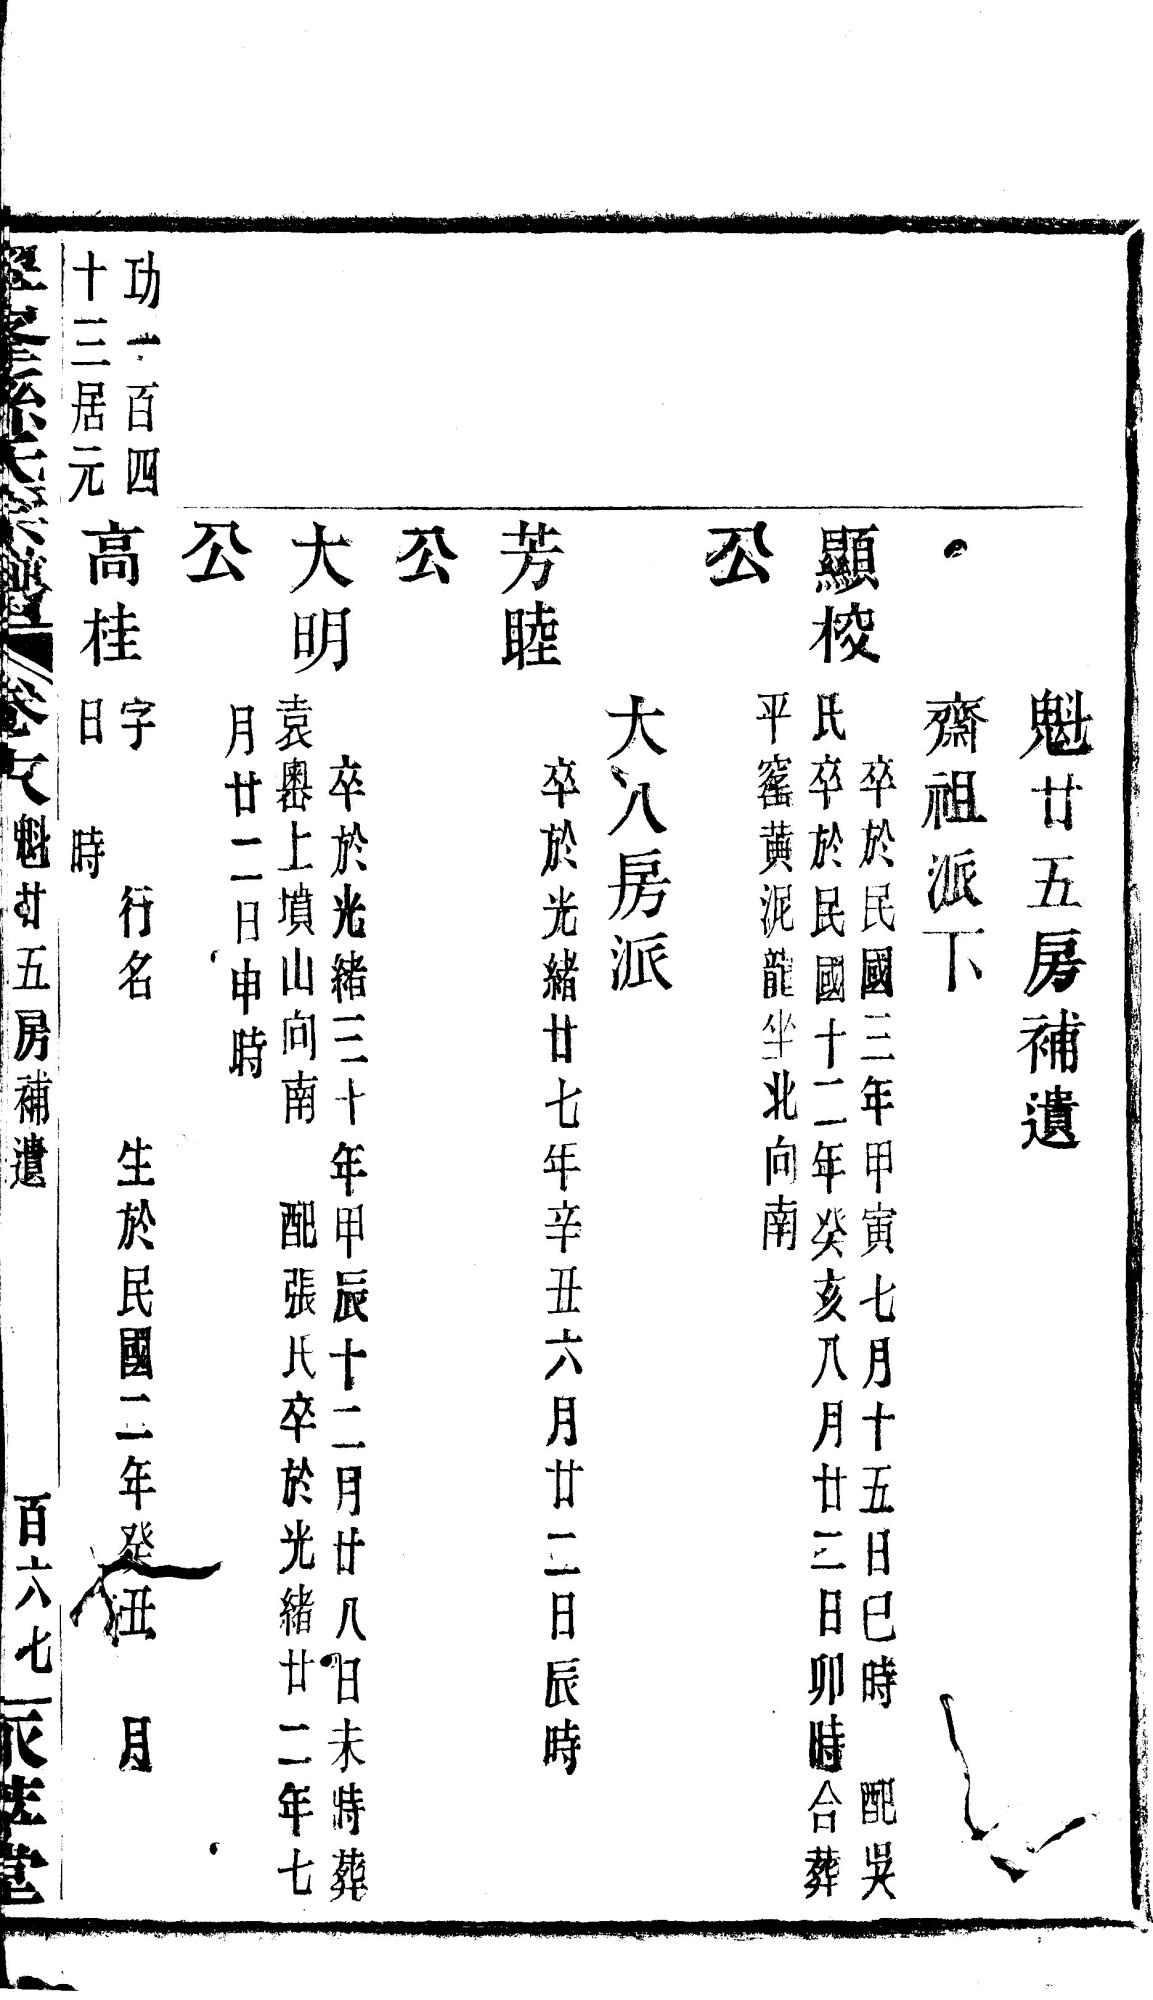 魁廿五房補遺
齋祖派下
顯梭
卒於民國三年甲寅七月十五日巳時　配吳
氏卒於民國十二年癸亥八月廿三日卯時合葬
平窰黄泥龍坐北向南
公
大八房派
芳睦
卒於光緒廿七年辛丑六月廿二日辰時
公
大明
卒於光緒三十年甲辰十二月廿八日未時葬
袁嶴上墳山向南　配張氏卒於光緒廿二年七
月廿二日申時
公
功一百四
十三居元
高桂
字　行名　生於民國二年癸丑　月
日　時
氏宗譜 卷 魁廿五房補遺 百六七 堂